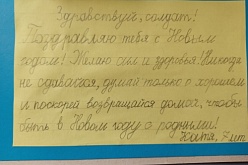 Здравствуй, солдат!
Поздравляю тебя с Новым
годом! Желаю сил и здоровья! Никогда
не сдавайся, думай только о хорошем
и поскорей возвращайся домой, чтобы
быть в Новом году с родными!
Катя, 7 лет